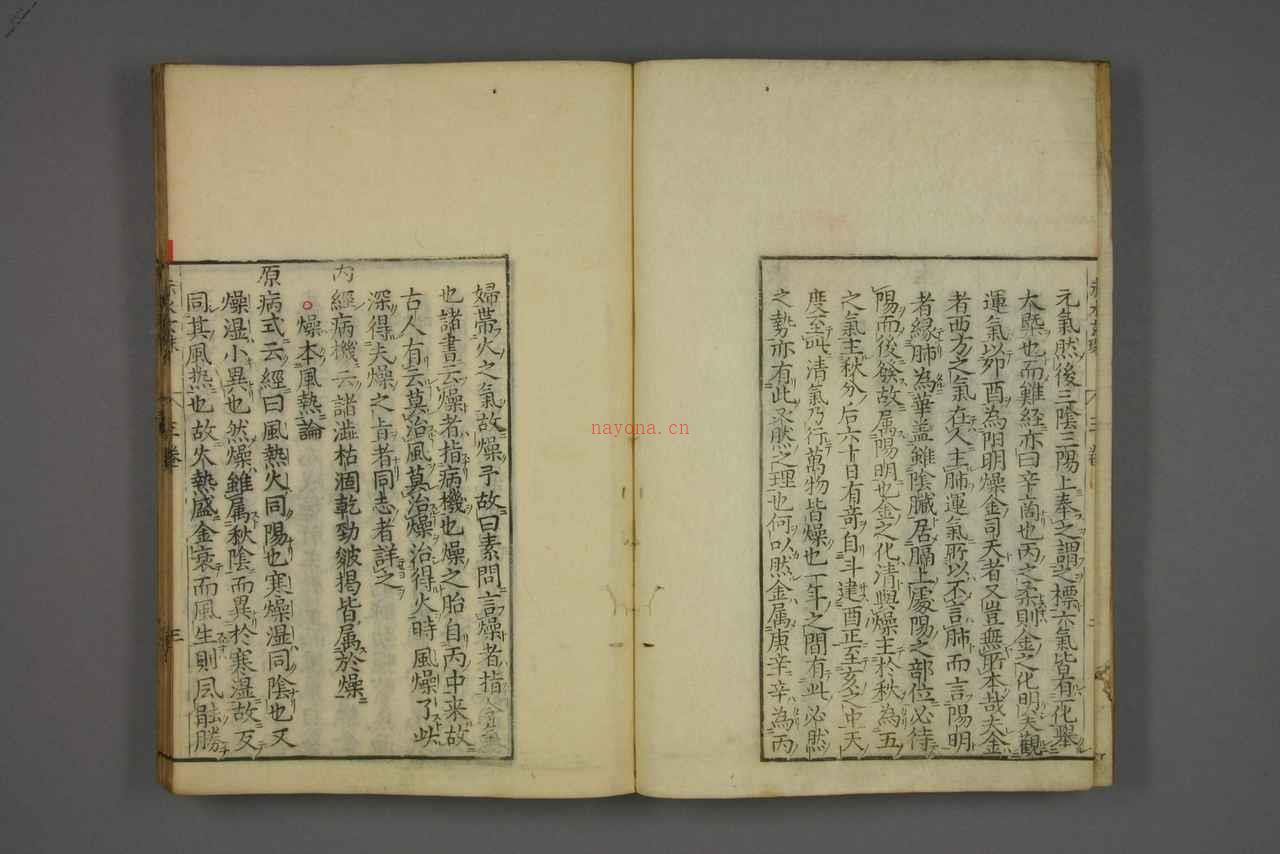 元氣然後三陰三陽上奉之謂之標六氣皆有化舉
大槩也而難經亦曰辛商也丙之柔則金之化明矣觀
運氣以夘酉為阳明燥金司天者又豈無所本哉夫金
者西方之氣在人主肺運氣所以不言肺而言陽明
者緣肺為華盖雖陰臟居膈上處陽之部位必待
陽而後發故属陽明也金之化清與燥主於秋為五
之氣主秋分后六十日有竒自斗建酉正至亥之中天
度至此清氣乃行萬物皆燥也一年之間有此必然
之勢亦有此必然之理也何以然金属庚辛辛為丙
婦帯火之氣故燥子故曰素問言燥者指
也諸書云燥者指病機也燥之胎自丙中来故
古人有云莫治風莫治燥治得火時風燥了此
深得夫燥之旨者同志者詳之
内經病機云諸澁枯涸乾勁皴揭皆属於燥
燥本風熱論
原病式云經曰風熱火同陽也寒燥湿同陰也又
燥湿小異也然燥雖属秋陰而異於寒湿故反
同其風热也故火熱盛金衰而風生則風能勝
三卷
三
nayona.cn